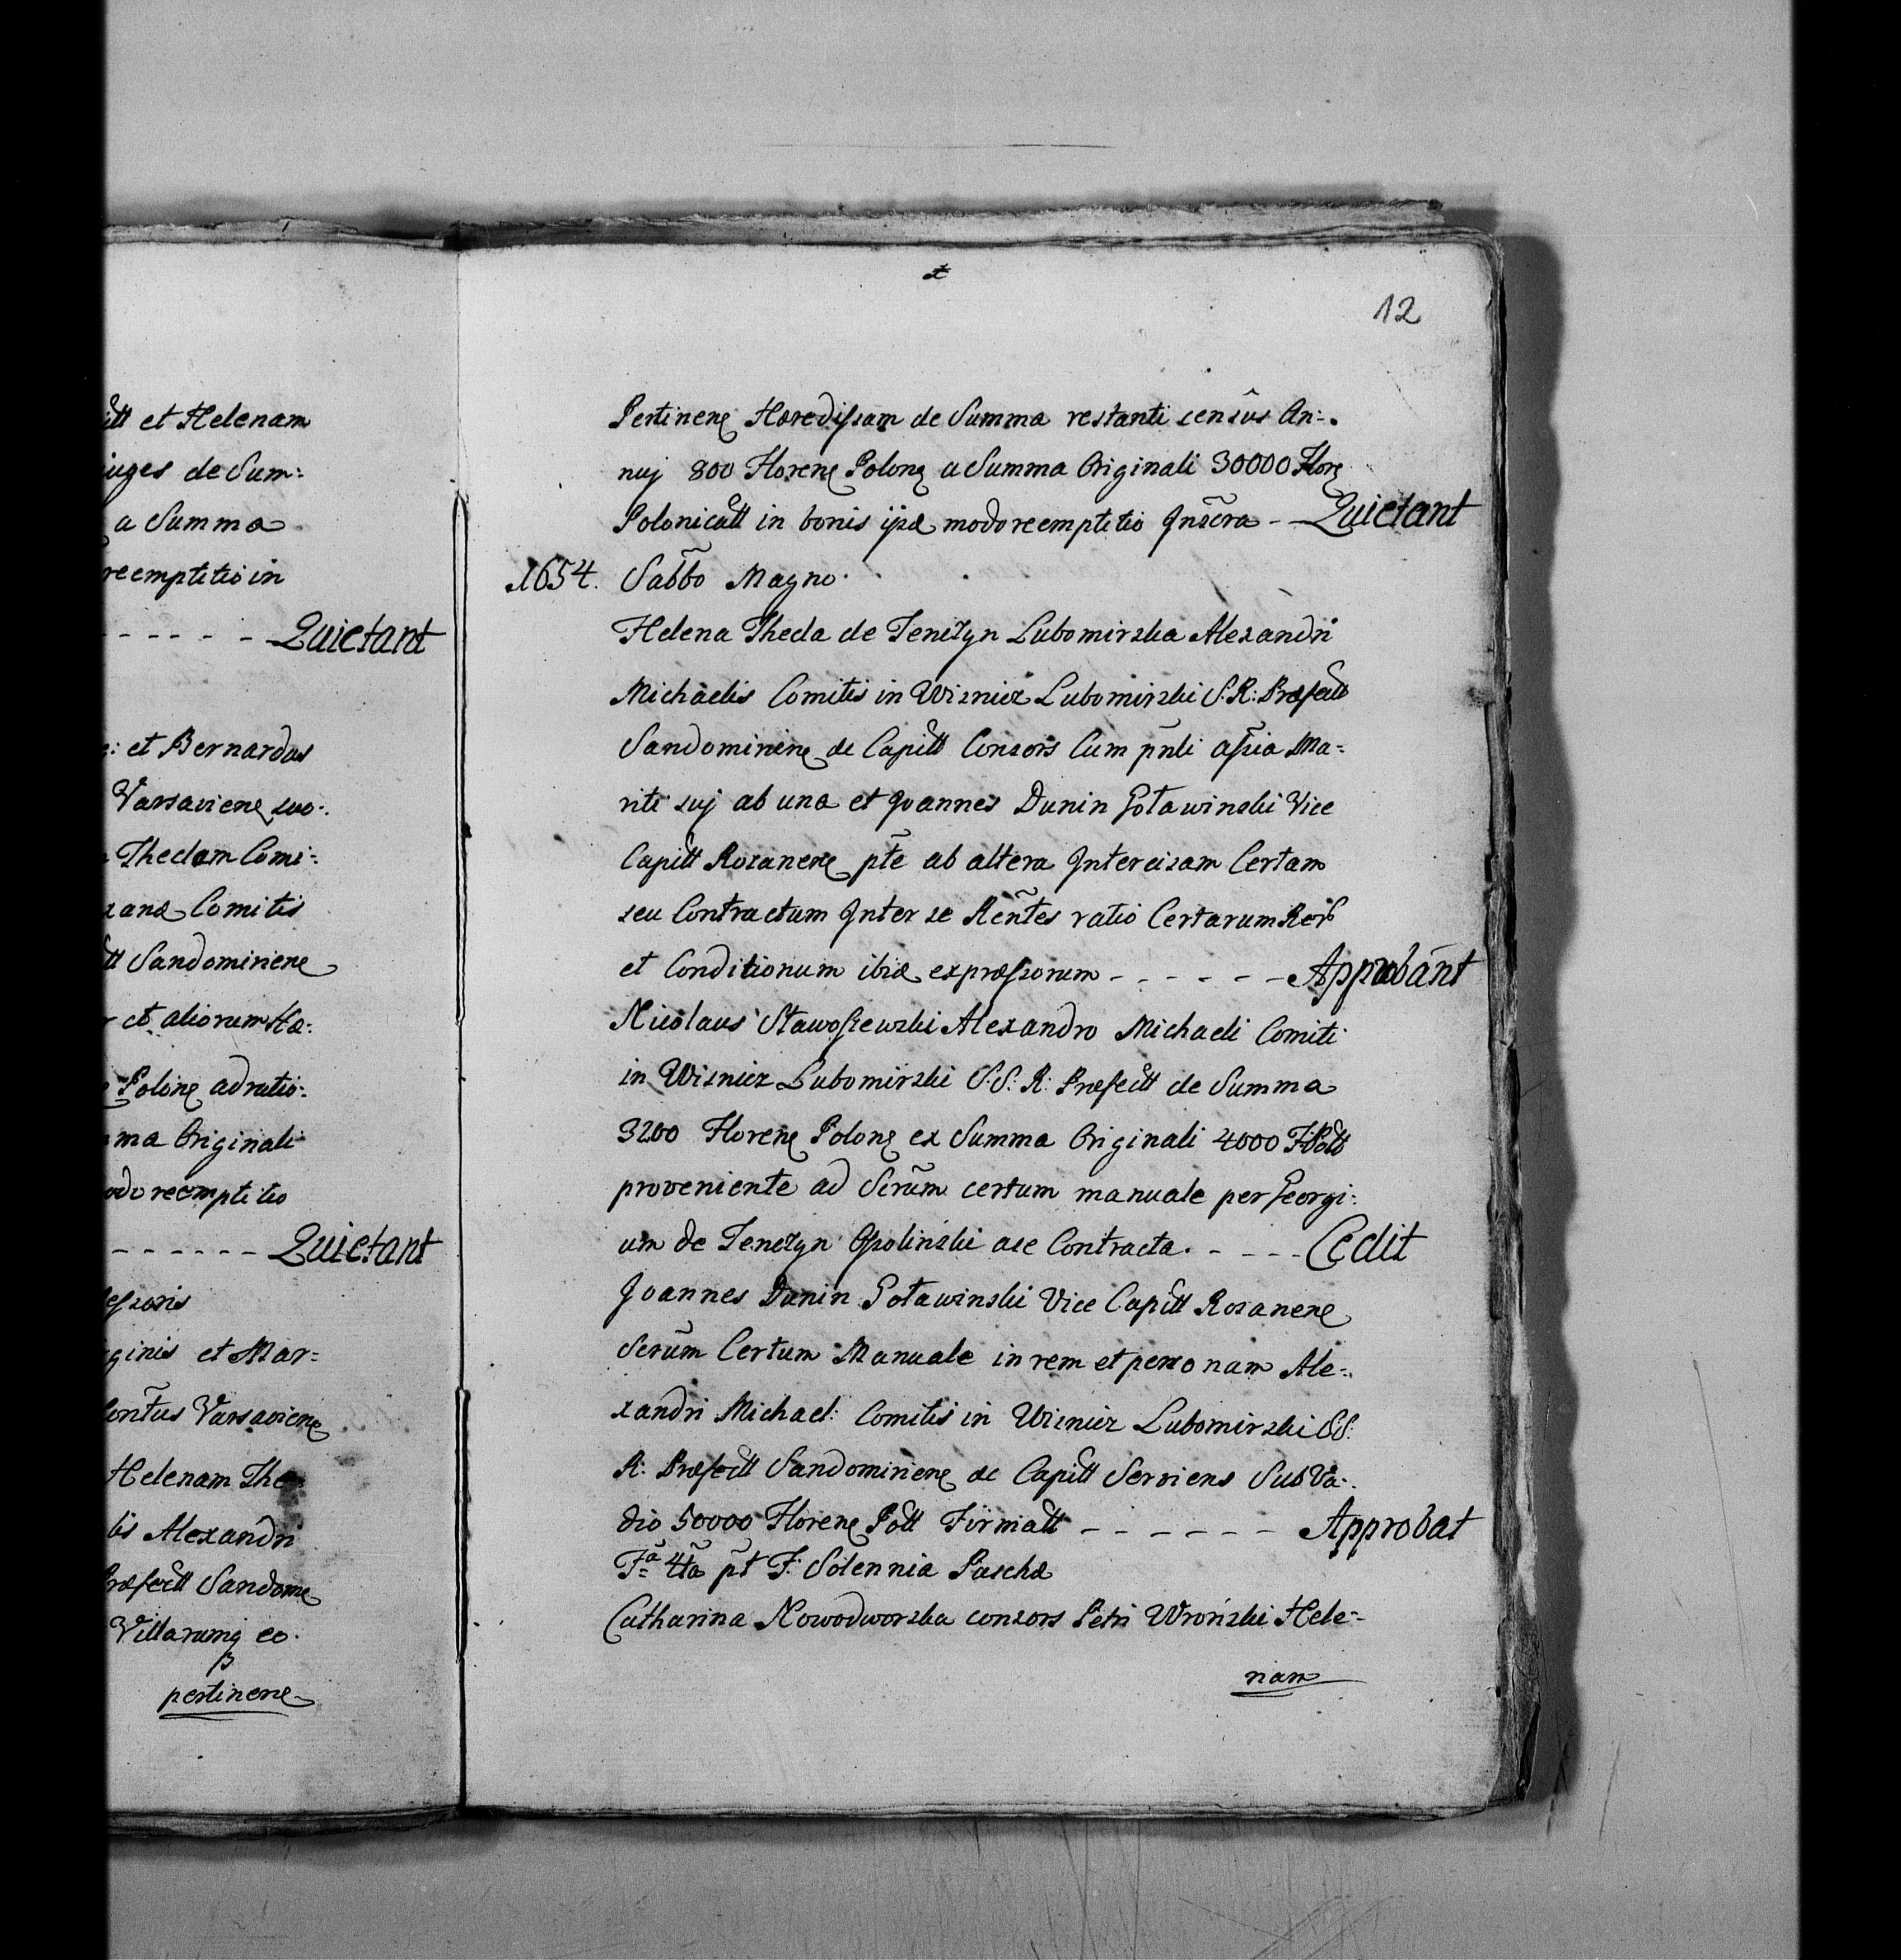 itt et Helenam
iuges de Sum=
a Summa
reemptitio in
- - - - - - Quietant
: et Bernardus
Varsaviene suo.
Theclam Comi=
xand Comitis
tt Sandominiene
et aliorum Hæ=
Polone ad ratio=
ma Originali
odo reemptitio
- - - - - - Quietant
essoris
ginis et Mar=
Varsaviene
Helenam The=
lis Alexandri
Præfectt Sandome
Villarumq eo.
pertinene
12
Pertinene Hæredissam de Summa restanti censûs An=
nuj 800 Florene Polone a Summa Originali 30000 Flore
Polonicatt in bonis ijsd modo reemptitio Inscra - - Quietant
1654. Sabbo Magno.
Helena Thecla de Tenczyn Lubomirska Alexandri
Michaelis Comitis in Wisnicz Lubomirski S. R: Præfectt
Sandominiene ac Capitt Consors Cum pnti assia Ma=
riti suj ab una et Joannes Dunin Goławinski Vice
Capitt Rozanene pte ab altera Intercisam Certam
seu Contractum Inter se Rentes ratio Certarum Rer
et Conditionum ibid expressorum - - - - - - Approbant
Nicolaus Stawossewski Alexandro Michaeli Comiti
in Wisnicz Lubomirski S. S: R: Præfectt de Summa
3200 Florene Polone ex Summa Originali 4000 F Pol
proveniente ad Scrum certum manuale per Georgi=
um de Tenczyn Ossolinski ac Contracta. - - - - Cedit
Joannes Dunin Goławinski Vice Capitt Rozanene
Scrum Certum Manuale in rem et personam Ale=
xandri Michael: Comitis in Wisnicz Lubomirski S S:
R: Præfectt Sandominiene ac Capitt Serviens Sub Va=
dio 50000 Florene Poltt Firmatt - - - - - - Approbat
Fa 4ta pt F: Solennia Paschæ
Catharina Nowodworska consors Petri Wroński Hele=
nam